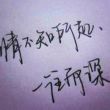 情不知所起，
一往而深